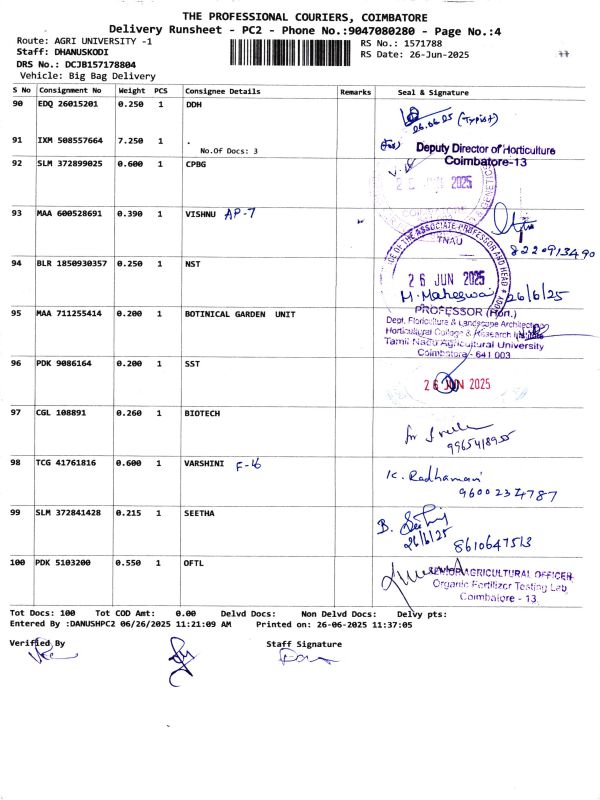 THE PROFESSIONAL COURIERS, COIMBATORE
Delivery Runsheet - PC2 - Phone No.:9047080280 - Page No.:4
Route: AGRI UNIVERSITY -1
Staff: DHANUSKODI
DRS No.: DCJB157178804
Vehicle: Big Bag Delivery
RS No.: 1571788
RS Date: 26-Jun-2025
S No Consignment No Weight PCS Consignee Details Remarks Seal & Signature
90 EDQ 26015201 0.250 1 DDH
26.06.25 (Typist)
91 IXM 508557664 7.250 1 .
No.Of Docs: 3
(For) Deputy Director of Horticulture
Coimbatore-13
92 SLM 372899025 0.600 1 CPBG
JUN 2025
93 MAA 600528691 0.390 1 VISHNU AP-7
8220913490
OF THE ASSOCIATE PROFESSOR AND HEAD
TNAU
94 BLR 1850930357 0.250 1 NST
26 JUN 2025
M. Maheswari 26/6/25
95 MAA 711255414 0.200 1 BOTINICAL GARDEN UNIT
PROFESSOR (Hort.)
Dept. Floriculture & Landscape Architecture
Horticultural College & Research Institute
Tamil Nadu Agricultural University
Coimbatore - 641 003
96 PDK 9086164 0.200 1 SST
26 JUN 2025
97 CGL 108891 0.260 1 BIOTECH
for
98 TCG 41761816 0.600 1 VARSHINI F-16
K. Radhamani
9600234787
99 SLM 372841428 0.215 1 SEETHA
B.
26/6/25
8610647513
100 PDK 5103200 0.550 1 OFTL
SENIOR AGRICULTURAL OFFICER
Organic Fertilizer Testing Lab
Coimbatore - 13.
Tot Docs: 100 Tot COD Amt: 0.00 Delvd Docs: Non Delvd Docs: Delvy pts:
Entered By :DANUSHPC2 06/26/2025 11:21:09 AM Printed on: 26-06-2025 11:37:05
Verified By Staff Signature